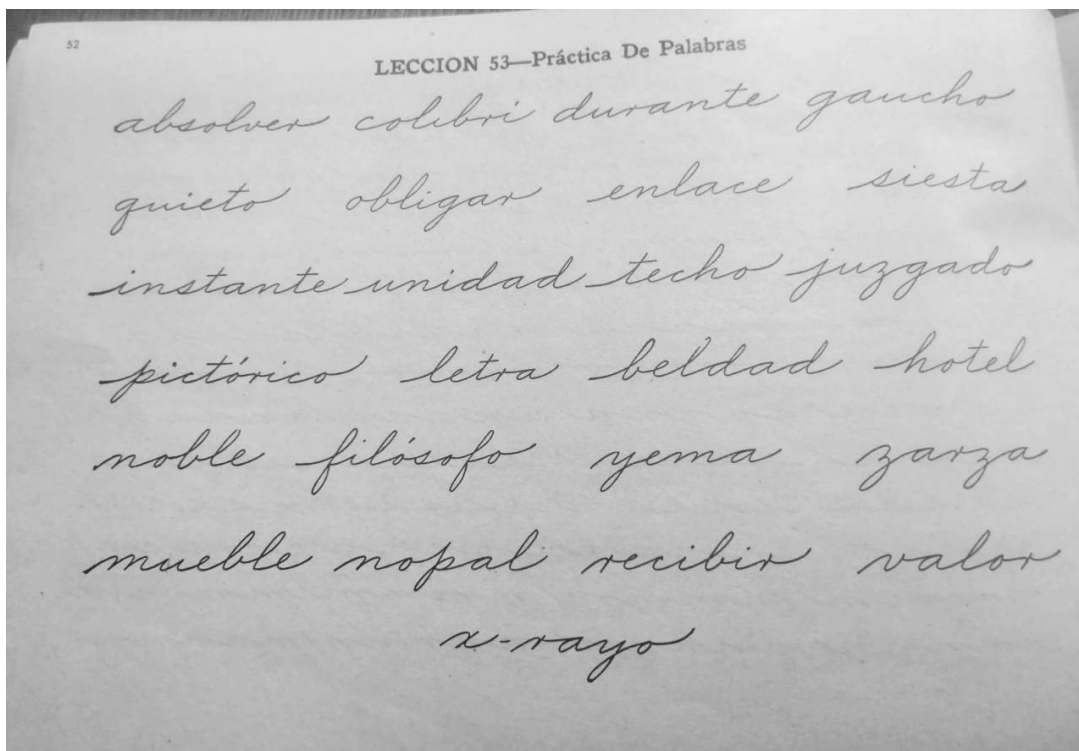 52
LECCION 53—Práctica De Palabras
absolver colibri durante gaucho
quieto obligar enlace siesta
instante unidad techo juzgado
pictórico letra beldad hotel
noble filósofo yema zarza
mueble nopal recibir valor
x-rayo